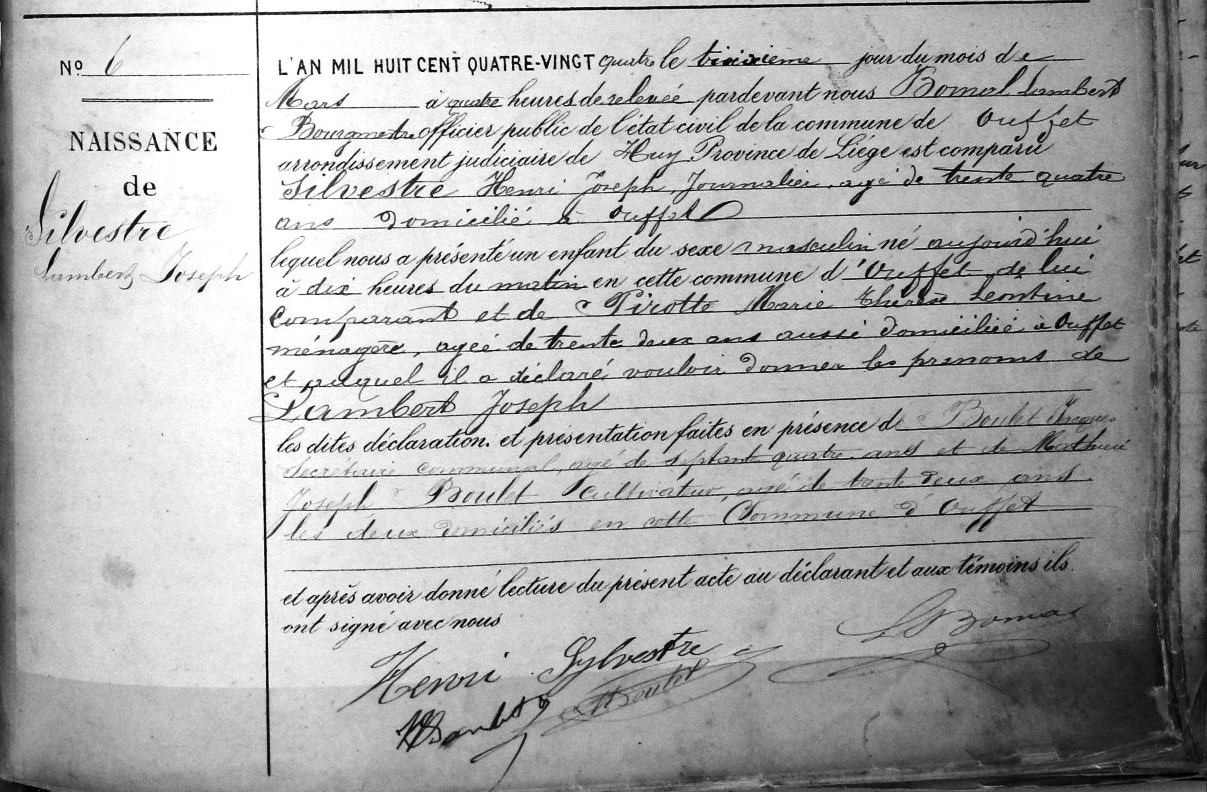 No 6
NAISSANCE
de
Silvestre
Lambert Joseph
L'AN MIL HUIT CENT QUATRE-VINGT quatre le troisième jour du mois de
Mars à quatre heures de relevée pardevant nous Bomal Lambert
Bourgmestre officier public de l'état civil de la commune de Ouffet
arrondissement judiciaire de Huy Province de Liége est comparu
Silvestre Henri Joseph, Journalier, agé de trente quatre
ans domicilié à Ouffet
lequel nous a présenté un enfant du sexe masculin né aujourd'hui
à dix heures du matin en cette commune d'Ouffet, de lui
comparant et de Pirotte Marie Thérèse Leontine
ménagère, agée de trente deux ans aussi domiciliée à Ouffet
et auquel il a déclaré vouloir donner les prenoms de
Lambert Joseph
les dites déclaration et présentation faites en présence de Boulet Jacques
Secrétaire communal, agé de septante quatre ans et de Mathieu
Joseph Boulet Cultivateur, agé de trente deux ans
les deux domiciliés en cette Commune d'Ouffet
et après avoir donné lecture du présent acte au déclarant et aux témoins ils
ont signé avec nous
Henri Sylvestre
L Bomal
Boulet